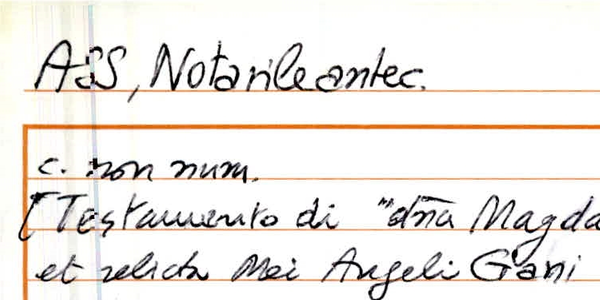 ASS, Notarile antec.
c. non num.
[Testamento di "dña Magda
et relicta Mei Angeli Gani